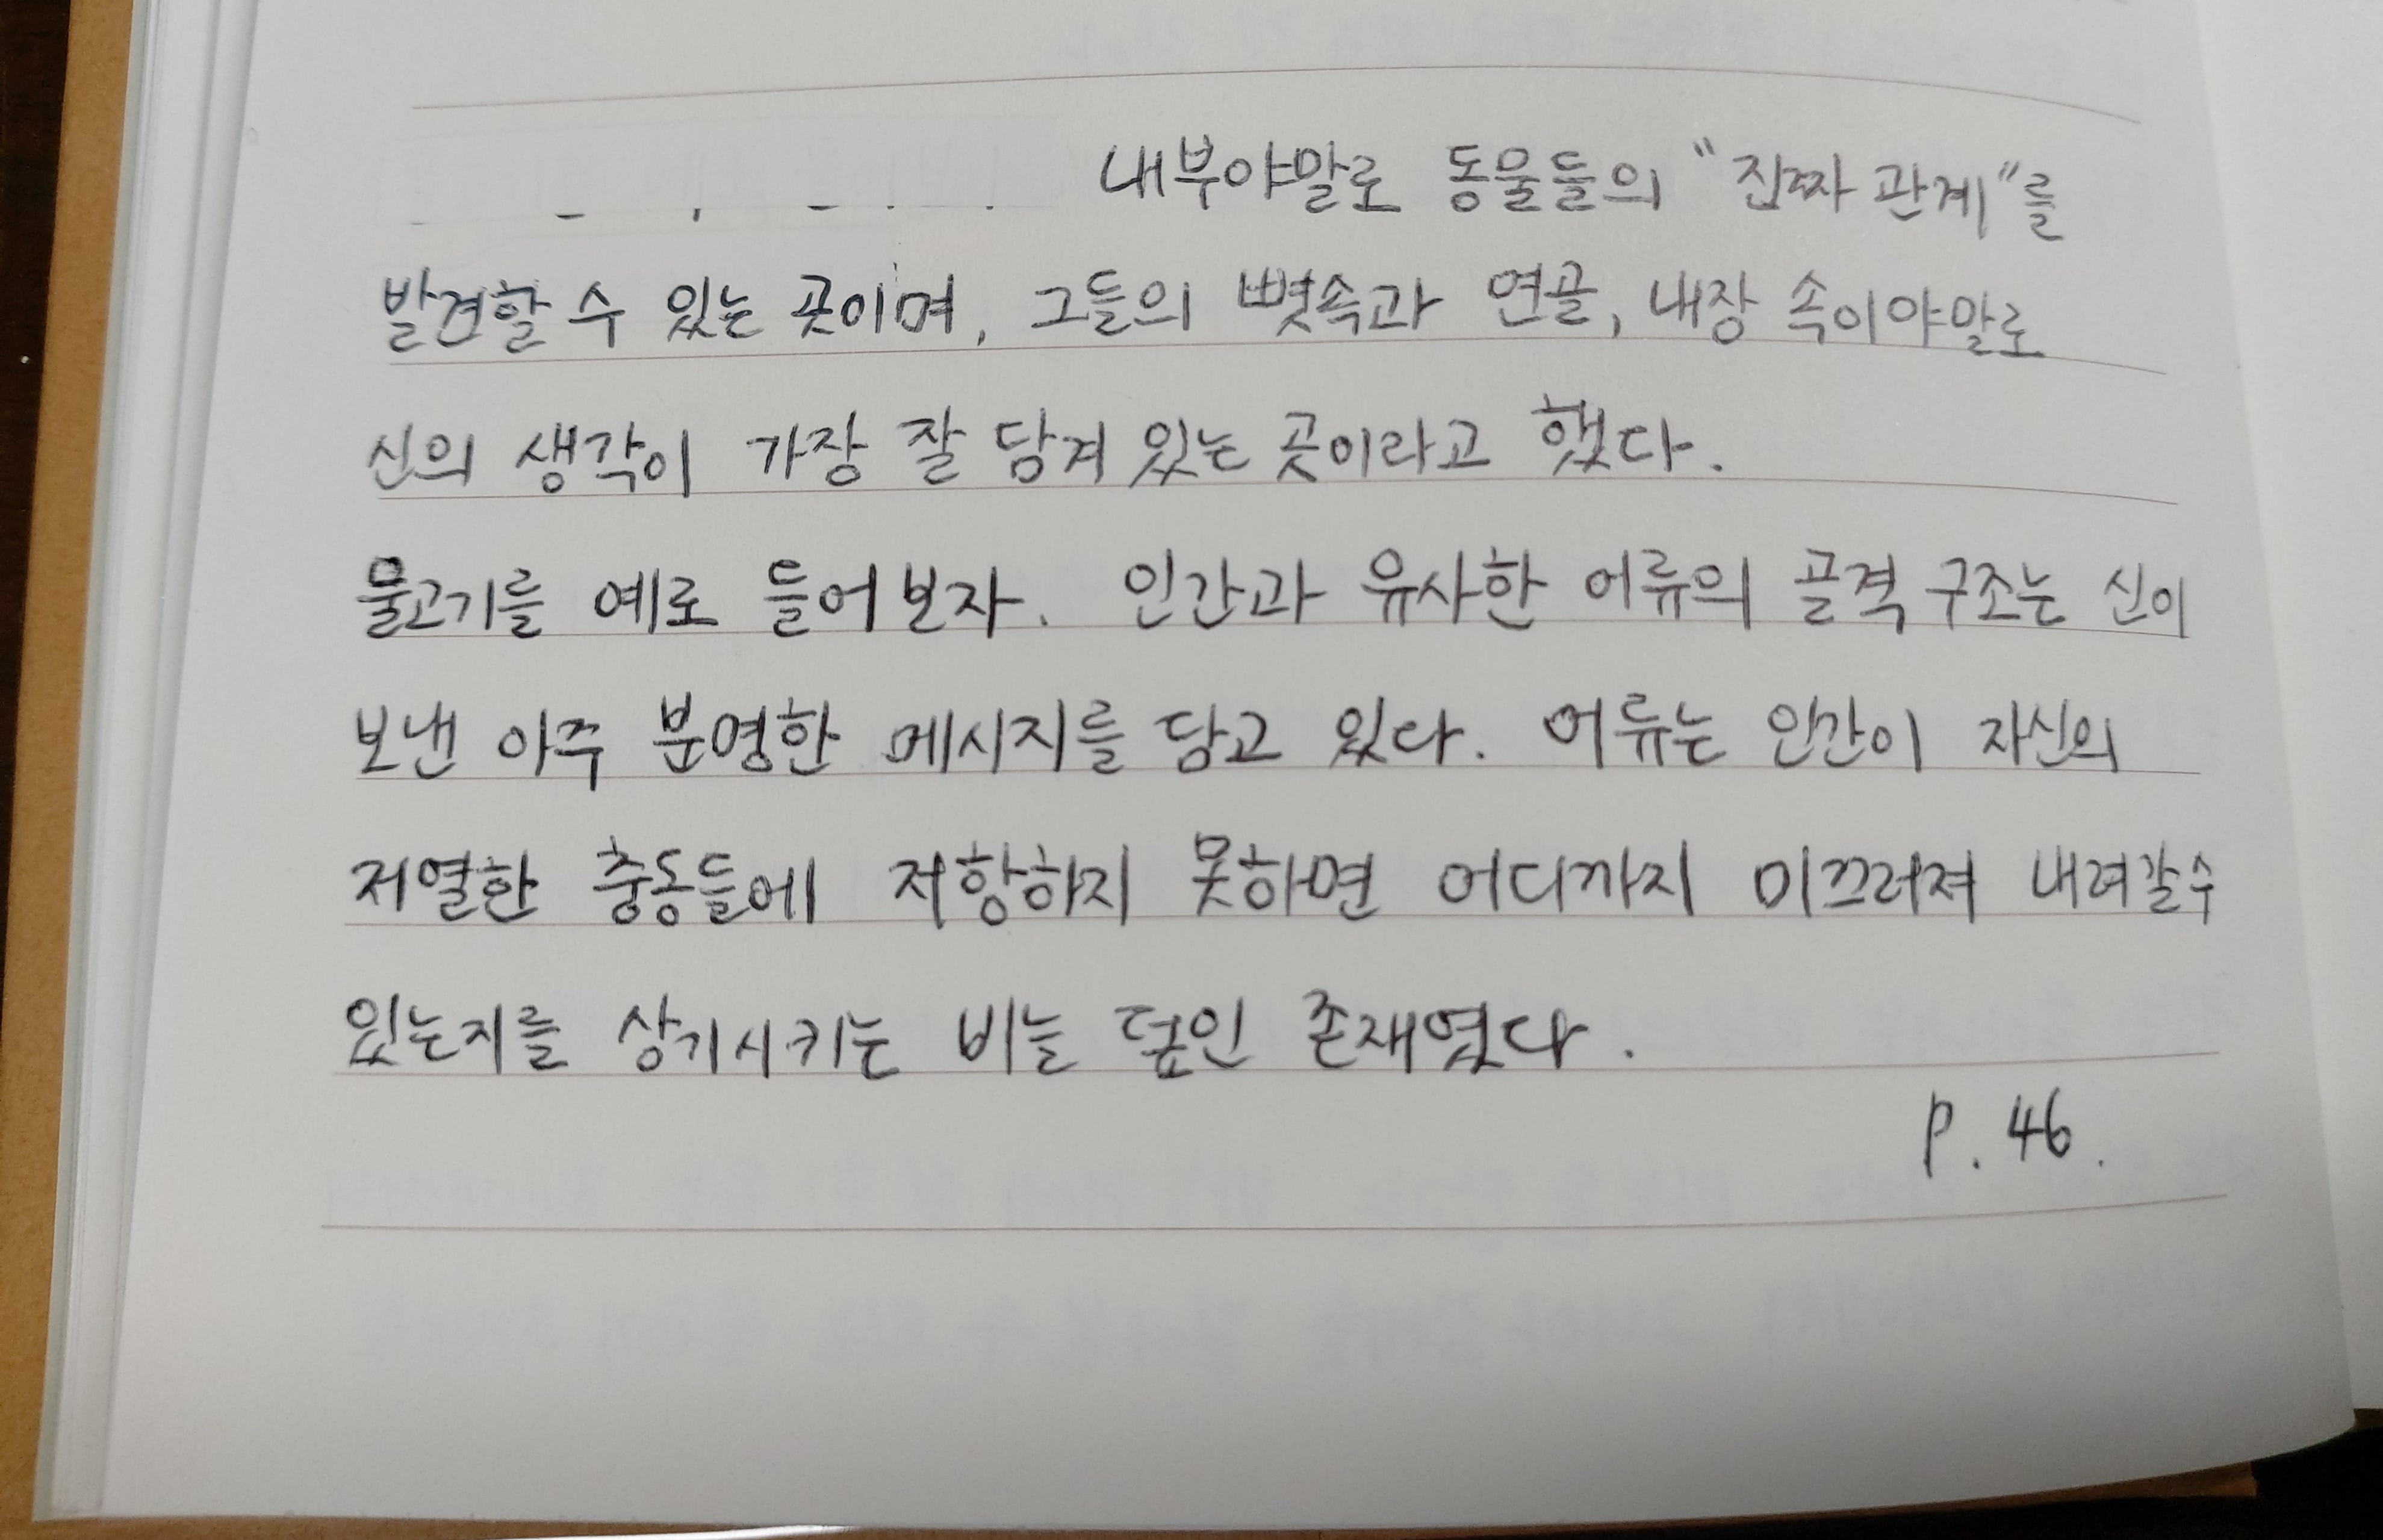 내부야말로 동물들의 "진짜 관계"를
발견할 수 있는 곳이며, 그들의 뼛속과 연골, 내장 속이야말로
신의 생각이 가장 잘 담겨 있는 곳이라고 했다.
물고기를 예로 들어보자. 인간과 유사한 어류의 골격 구조는 신이
보낸 아주 분명한 메시지를 담고 있다. 어류는 인간이 자신의
저열한 충동들에 저항하지 못하면 어디까지 미끄러져 내려갈 수
있는지를 상기시키는 비늘 덮인 존재였다.
p. 46.